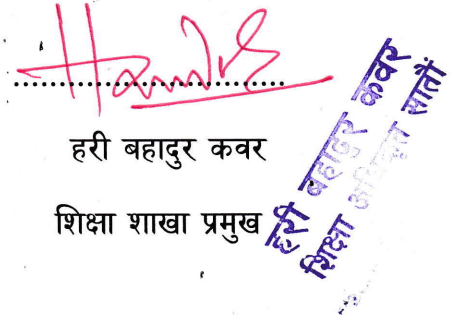 हरी बहादुर कवर
शिक्षा शाखा प्रमुख
हरी बहादुर कवर
शिक्षा अधिकृत सातौं